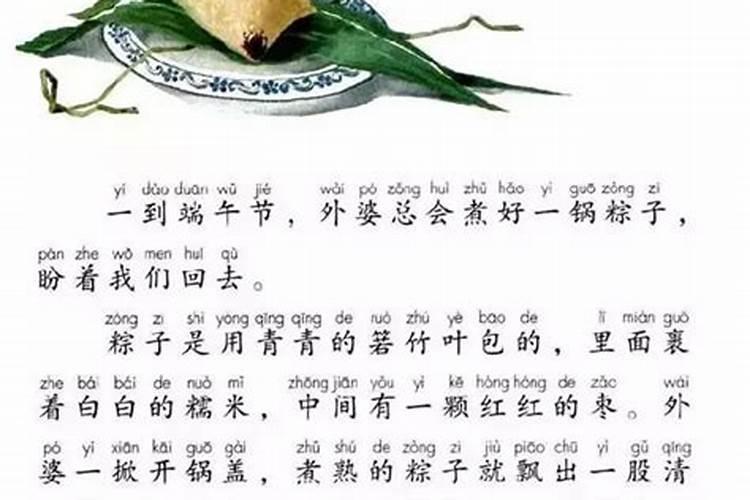 yí dào duān wǔ jié wài pó zǒng huì zhǔ hǎo yì guō zòng zi
一到端午节，外婆总会煮好一锅粽子，
pàn zhe wǒ men huí qù
盼着我们回去。
zòng zi shì yòng qīng qīng de ruò zhú yè bāo de lǐ miàn guǒ
粽子是用青青的箬竹叶包的，里面裹
zhe bái bái de nuò mǐ zhōng jiān yǒu yì kē hóng hóng de zǎo wài
着白白的糯米，中间有一颗红红的枣。外
pó yì xiān kāi guō gài zhǔ shú de zòng zi jiù piāo chū yì gǔ qīng
婆一掀开锅盖，煮熟的粽子就飘出一股清